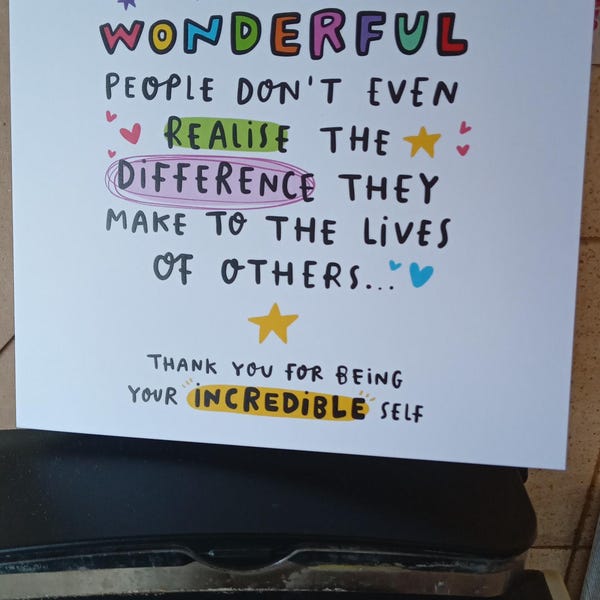 WONDERFUL
PEOPLE DON'T EVEN
REALISE THE
DIFFERENCE THEY
MAKE TO THE LIVES
OF OTHERS...
THANK YOU FOR BEING
YOUR INCREDIBLE SELF